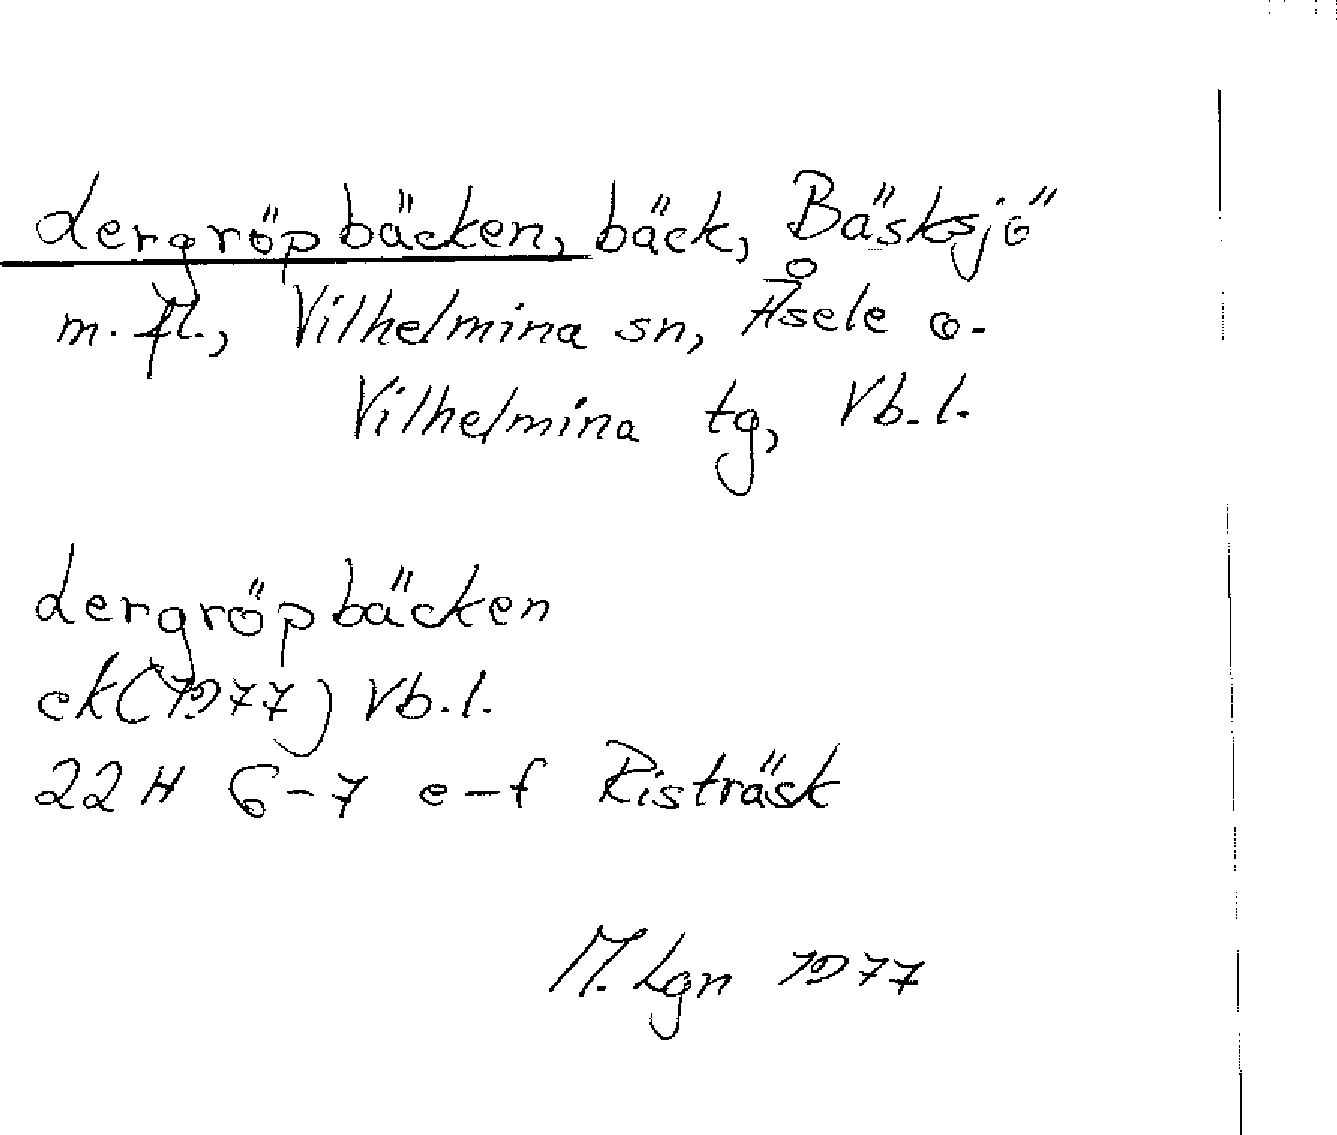 Lergröpbäcken, bäck, Bäsksjö
m. fl., Vilhelmina sn, Åsele o.
Vilhelmina tg, Vb. l.
Lergröpbäcken
ek (1977) Vb. l.
22 H 6-7 e-f Risträsk
M. Lgn 1977